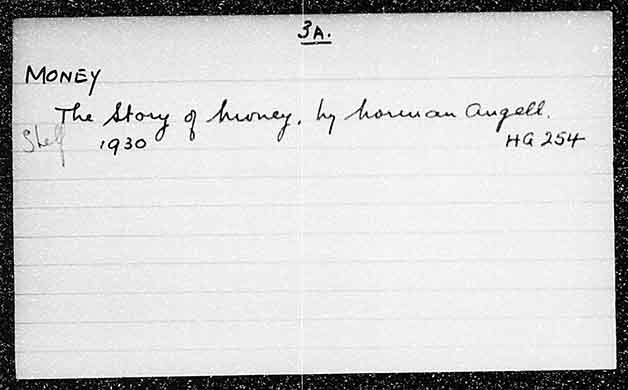 3A.
MONEY
The Story of Money, by Norman Angell.
Shelf 1930 HG 254